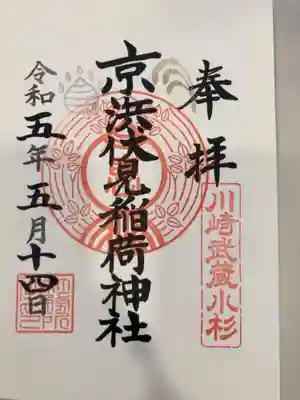 奉拝
川崎武蔵小杉
京浜伏見稲荷神社
令和五年五月十四日